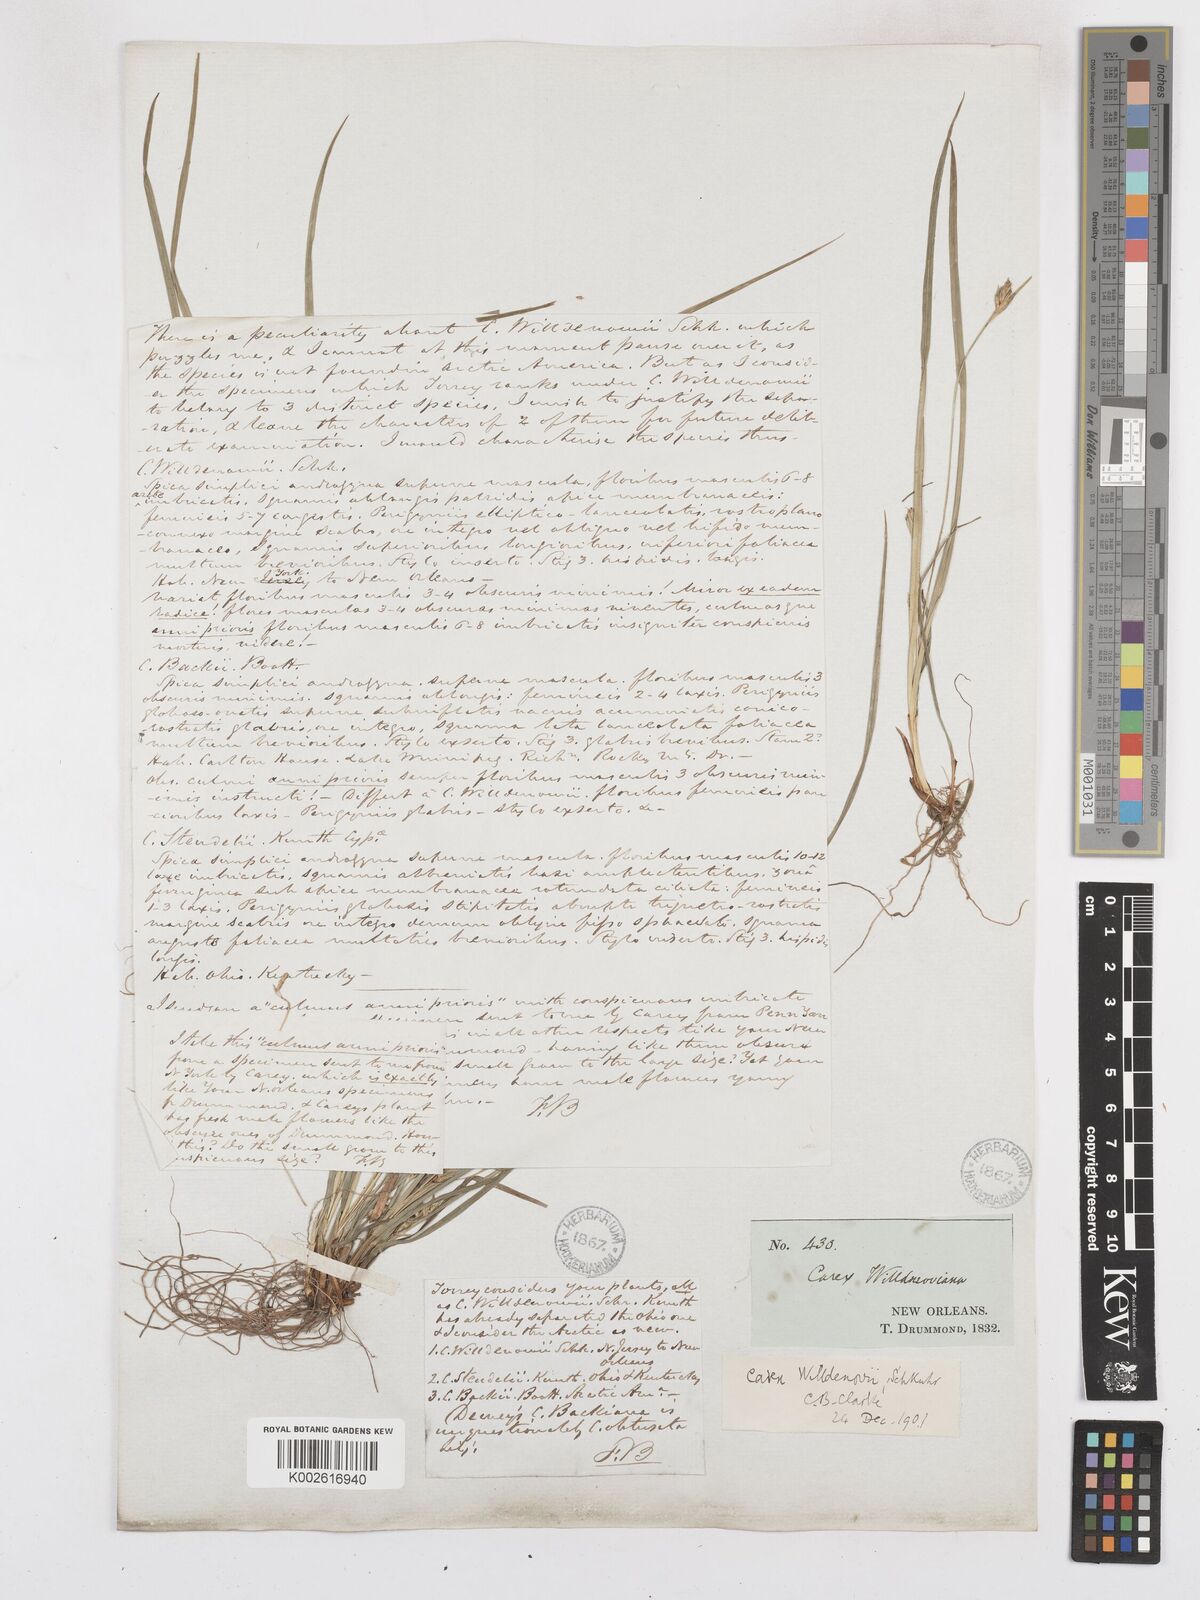 There is a peculiarity about C. Willdenowii Schk. which
puzzles me, & I cannot at this moment pause over it, as
the species is not found in Arctic America. But as I consid-
-er the specimens which Torrey ranks under C. Willdenowii
to belong to 3 distinct species, I wish to justify the sepa-
-ration, & leave the characters of 2 of them for future delib-
-erate examination. I would characterise the species thus-
C. Willdenowii. Schk.
Spica simplici androgyna superne mascula, floribus masculis 6-8
arcte imbricatis, squamis oblongis patridis apice membranaceis:
femineis 5-7 congestis. Perigyniis elliptico-lanceolatis, rostro plano
-convexo margine scabro, ore integro vel obliquo vel bifido mem-
-branaceo, squamis superioribus longioribus, inferiori foliacea
multum brevioribus. Stylo inserto. Stig 3. hispidis. longis.
Hab. New Jersey York to New Orleans-
variat floribus masculis 3-4 obscuris minimis! Miror ex eadem
radice! flores masculos 3-4 obscuros minimos viventes, culmosque
anni prioris floribus masculis 6-8 imbricatis insigniter conspicuis
mortuis, videre!-
C. Backii. Boott.
Spica simplici androgyna. superne mascula. floribus masculis 3
obscuris minimis. squamis oblongis: femineis 2-4 laxis. Perigyniis
globoso-ovatis superne subinflatis vacuis acuminatis conico-
-rostratis glabris, ore integro, squama lata lanceolata foliacea
multum brevioribus. Stylo exserto. Stig 3. glabris brevibus. Stam 2?
Hab. Carlton House. Lake Winnipeg. Richn. Rocky Mts. Dr.-
Obs. culmi anni prioris semper floribus masculis 3 obscuris min-
-imis instructi!- Differt a C. Willdenowii. floribus femineis pau-
-cioribus laxis- Perigyniis glabris- stylo exserto. &-
C. Steudelii. Kunth Cypa
Spica simplici androgyna superne mascula. floribus masculis 10-12
laxe imbricatis, squamis abbreviatis basi amplectentibus. zona
ferruginea sub apice membranacea rotundata ciliata: femineis
1-3 laxis. Perigyniis globosis stipitatis abrupte triquetro-rostratis
margine scabris ore integro demum oblique fisso sphacelato. squama
angusta foliacea multoties brevioribus. Stylo inserto. Stig 3. hispidis
longis.
Hab. Ohio. Kentucky-
I send you a "culmus anni prioris" with conspicuous imbricate
specimen sent to me by Carey from Penn Yan
is in all other respects like your New
mmond- having like them obscure
small grow to the large size? Yet your
mens have male flowers young
F.B
I take this "culmus anni prioris"
from a specimen sent to me from
N York by Carey. which is exactly
like your N. Orleans specimens
fr Drummond. & Careys plant
has fresh male flowers like the
obscure ones of Drummond. How
this? Do the small grow to this
nspicuous size? F.B
HERBARIUM
1867.
HOOKERIANUM
HERBARIUM
1867.
HOOKERIANUM
Torrey considers your plants, all
as C. Willdenowii. Schr. Kunth
has already separated the Ohio one
& I consider the Arctic as new.
1. C. Willdenowii Schk. N. Jersey to New
Orleans
2. C. Steudelii. Kunth. Ohio & Kentucky
3. C. Backii. Boott. Arctic Amn.-
Dewey's C. Backiana is
unquestionably C. obtusata
Lilj.
F.B
No. 430.
Carex Willdneoviana
NEW ORLEANS.
T. DRUMMOND, 1832.
Carex Willdenovii, Schkuhr
C.B. Clarke
24 Dec. 1901
ROYAL BOTANIC GARDENS KEW
K002616940
inches
centimetres
Don Williams
M001031
copyright reserved
cm
KEW
Royal Botanic Gardens